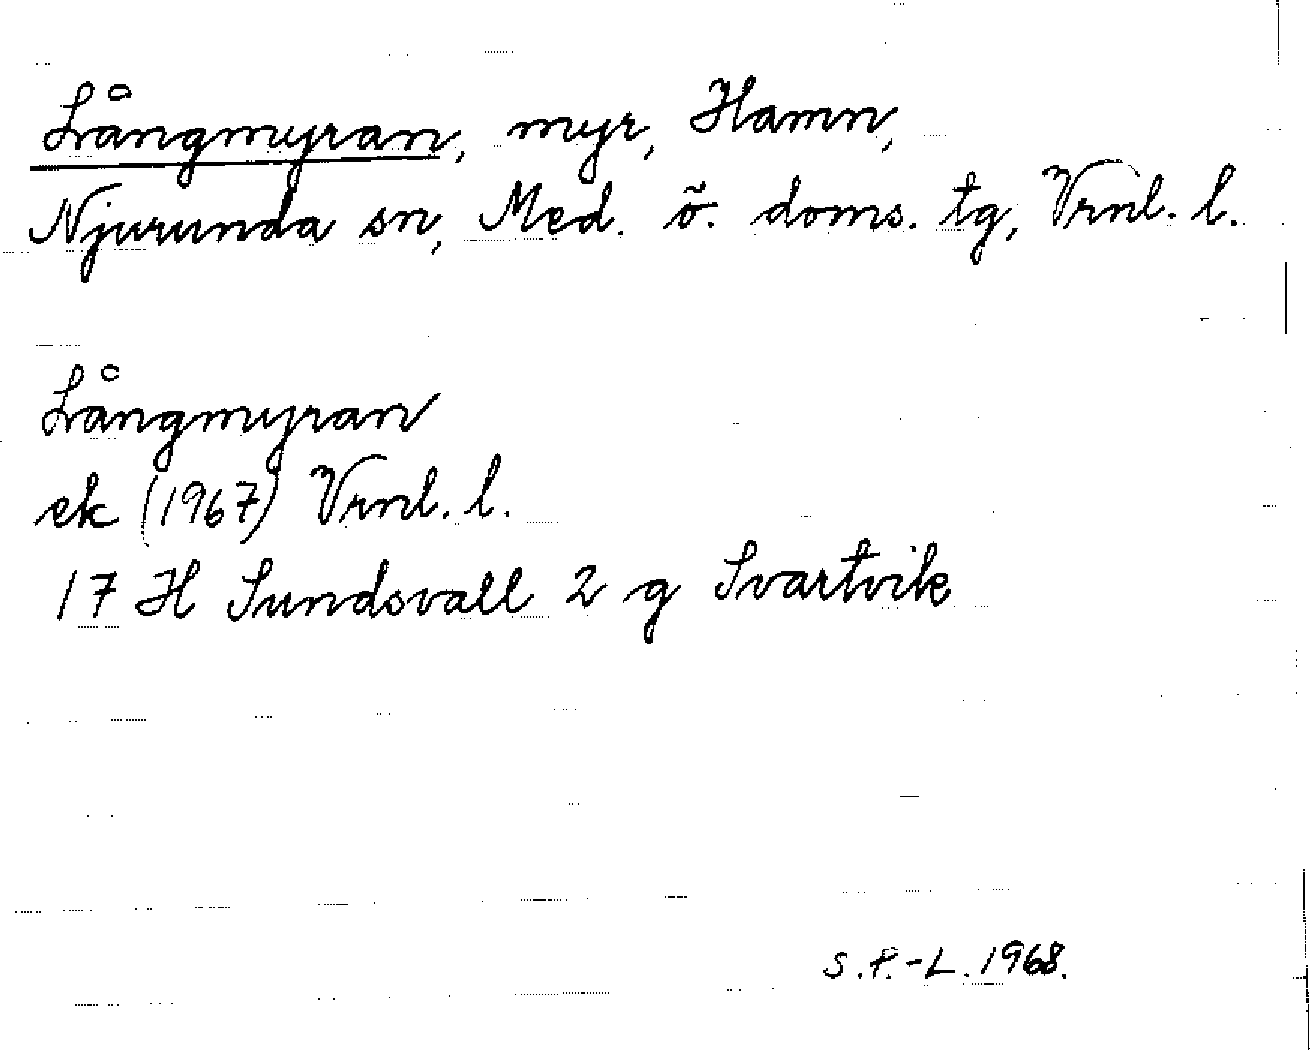 Långmyran, myr, Hamn,
Njurunda sn, Med. ö. doms. tg, Vrnl. l.
Långmyran
ek (1967) Vrnl. l.
17 H Sundsvall 2 g Svartvik
S.P.-L. 1968.